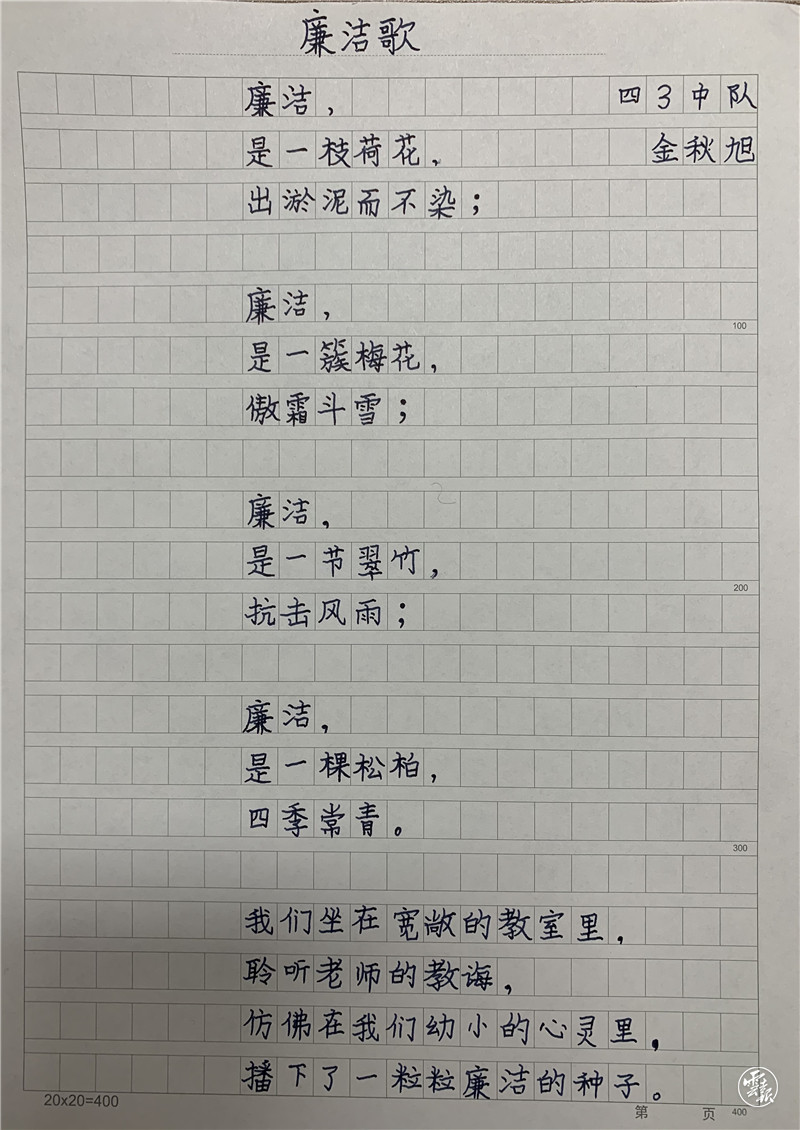 廉洁歌
廉洁， 四3中队
是一枝荷花， 金秋旭
出淤泥而不染；
廉洁，
100
是一簇梅花，
傲霜斗雪；
廉洁，
是一节翠竹，
200
抗击风雨；
廉洁，
是一棵松柏，
四季常青。
300
我们坐在宽敞的教室里，
聆听老师的教诲，
仿佛在我们幼小的心灵里，
播下了一粒粒廉洁的种子。
20x20=400
第 页 400
雲报